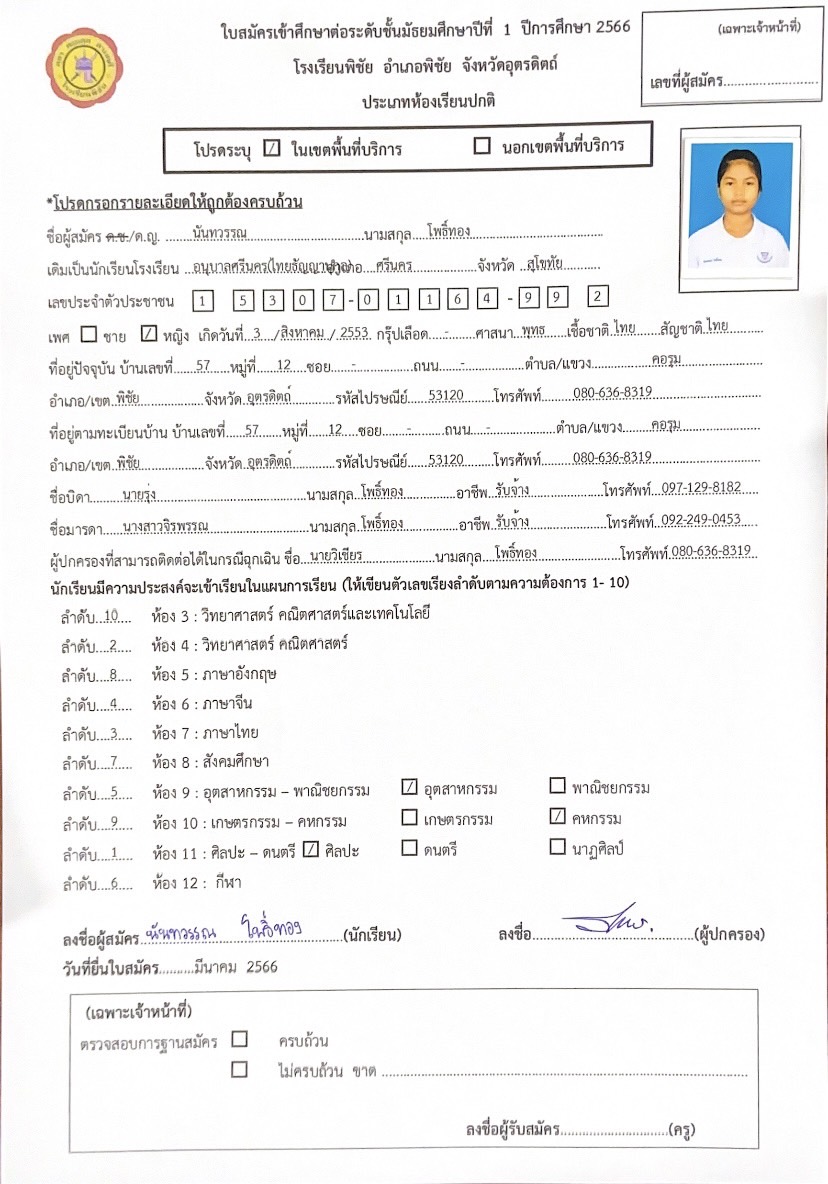 ใบสมัครเข้าศึกษาต่อระดับชั้นมัธยมศึกษาปีที่ 1 ปีการศึกษา 2566
(เฉพาะเจ้าหน้าที่)
โรงเรียนพิชัย อำเภอพิชัย จังหวัดอุตรดิตถ์
เลขที่ผู้สมัคร..........................
ประเภทห้องเรียนปกติ
โปรดระบุ ☑ ในเขตพื้นที่บริการ ☐ นอกเขตพื้นที่บริการ
*โปรดกรอกรายละเอียดให้ถูกต้องครบถ้วน
ชื่อผู้สมัคร ด.ช./ด.ญ. นันทวรรณ นามสกุล โพธิ์ทอง
เดิมเป็นนักเรียนโรงเรียน อนุบาลศรีนคร อำเภอ ศรีนคร จังหวัด สุโขทัย
เลขประจำตัวประชาชน 1 5307-01164-99 2
เพศ ☐ ชาย ☑ หญิง เกิดวันที่ 3 /สิงหาคม / 2553 กรุ๊ปเลือด - ศาสนา พุทธ เชื้อชาติ ไทย สัญชาติ ไทย
ที่อยู่ปัจจุบัน บ้านเลขที่ 57 หมู่ที่ 12 ซอย - ถนน - ตำบล/แขวง คอรุม
อำเภอ/เขต พิชัย จังหวัด อุตรดิตถ์ รหัสไปรษณีย์ 53120 โทรศัพท์ 080-636-8319
ที่อยู่ตามทะเบียนบ้าน บ้านเลขที่ 57 หมู่ที่ 12 ซอย - ถนน - ตำบล/แขวง คอรุม
อำเภอ/เขต พิชัย จังหวัด อุตรดิตถ์ รหัสไปรษณีย์ 53120 โทรศัพท์ 080-636-8319
ชื่อบิดา นายรุ่ง นามสกุล โพธิ์ทอง อาชีพ รับจ้าง โทรศัพท์ 097-129-8182
ชื่อมารดา นางสาวจิรพรรณ นามสกุล โพธิ์ทอง อาชีพ รับจ้าง โทรศัพท์ 092-249-0453
ผู้ปกครองที่สามารถติดต่อได้ในกรณีฉุกเฉิน ชื่อ นายวิเชียร นามสกุล โพธิ์ทอง โทรศัพท์ 080-636-8319
นักเรียนมีความประสงค์จะเข้าเรียนในแผนการเรียน (ให้เขียนตัวเลขเรียงลำดับตามความต้องการ 1- 10)
ลำดับ 10 ห้อง 3 : วิทยาศาสตร์ คณิตศาสตร์และเทคโนโลยี
ลำดับ 2 ห้อง 4 : วิทยาศาสตร์ คณิตศาสตร์
ลำดับ 8 ห้อง 5 : ภาษาอังกฤษ
ลำดับ 4 ห้อง 6 : ภาษาจีน
ลำดับ 3 ห้อง 7 : ภาษาไทย
ลำดับ 7 ห้อง 8 : สังคมศึกษา
ลำดับ 5 ห้อง 9 : อุตสาหกรรม – พาณิชยกรรม ☑ อุตสาหกรรม ☐ พาณิชยกรรม
ลำดับ 9 ห้อง 10 : เกษตรกรรม – คหกรรม ☐ เกษตรกรรม ☑ คหกรรม
ลำดับ 1 ห้อง 11 : ศิลปะ – ดนตรี ☑ ศิลปะ ☐ ดนตรี ☐ นาฏศิลป์
ลำดับ 6 ห้อง 12 : กีฬา
ลงชื่อผู้สมัคร นันทวรรณ โพธิ์ทอง (นักเรียน) ลงชื่อ (ผู้ปกครอง)
วันที่ยื่นใบสมัคร..........มีนาคม 2566
(เฉพาะเจ้าหน้าที่)
ตรวจสอบการฐานสมัคร ☐ ครบถ้วน
☐ ไม่ครบถ้วน ขาด ..........................
ลงชื่อผู้รับสมัคร..........................(ครู)